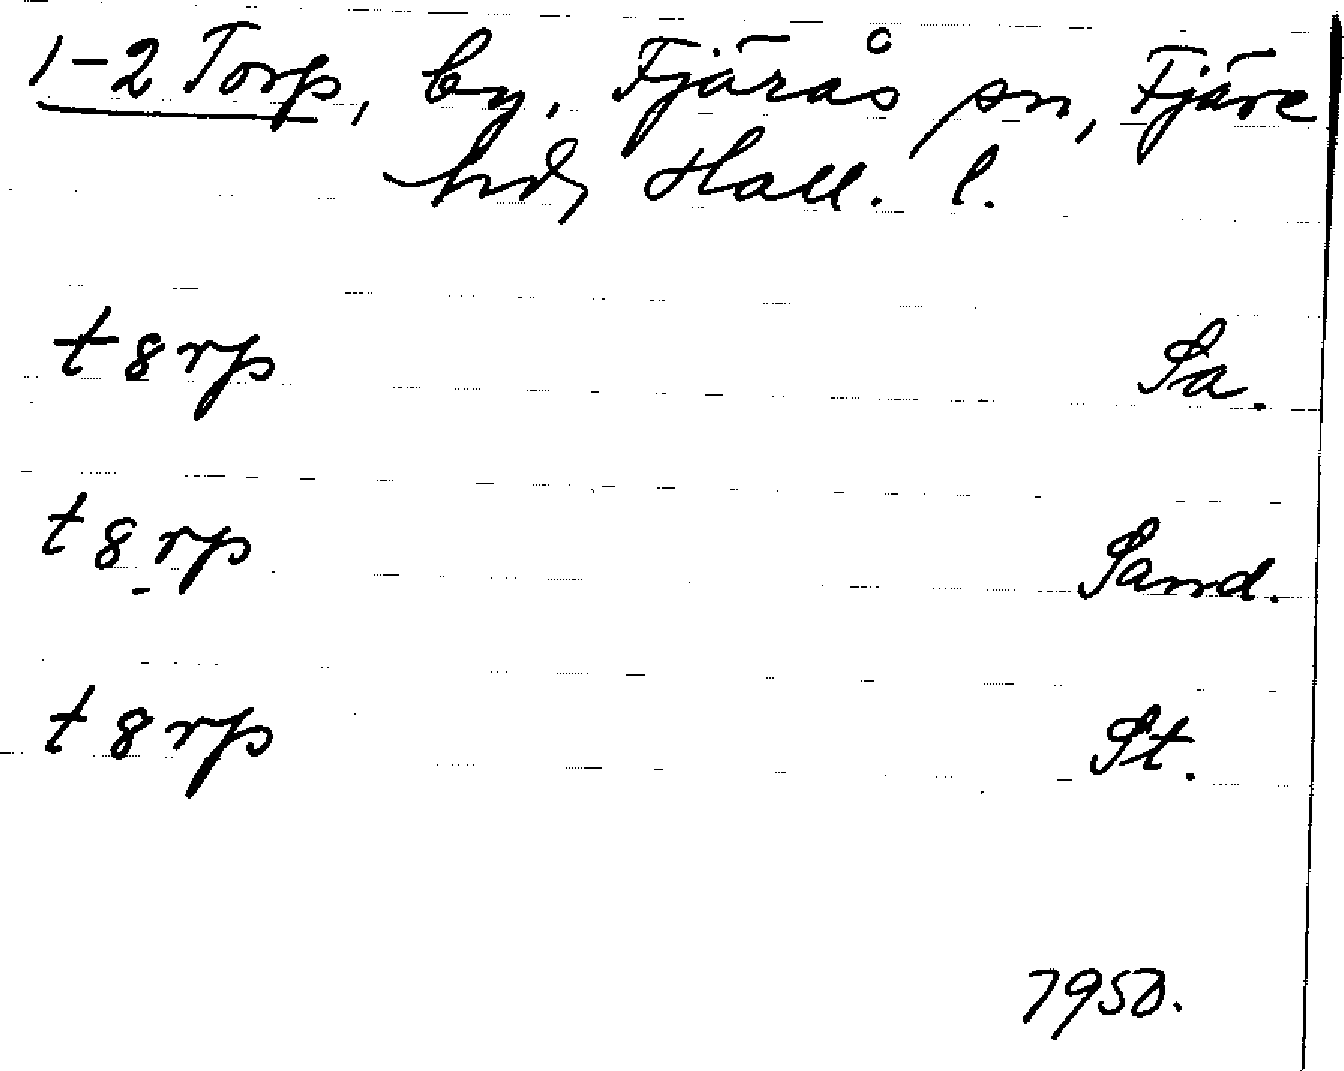 1-2 Torp, by. Fjärås sn, Fjäre
hd, Hall. l.
t8rp Sa.
t8rp Sand.
t8rp St.
1950.